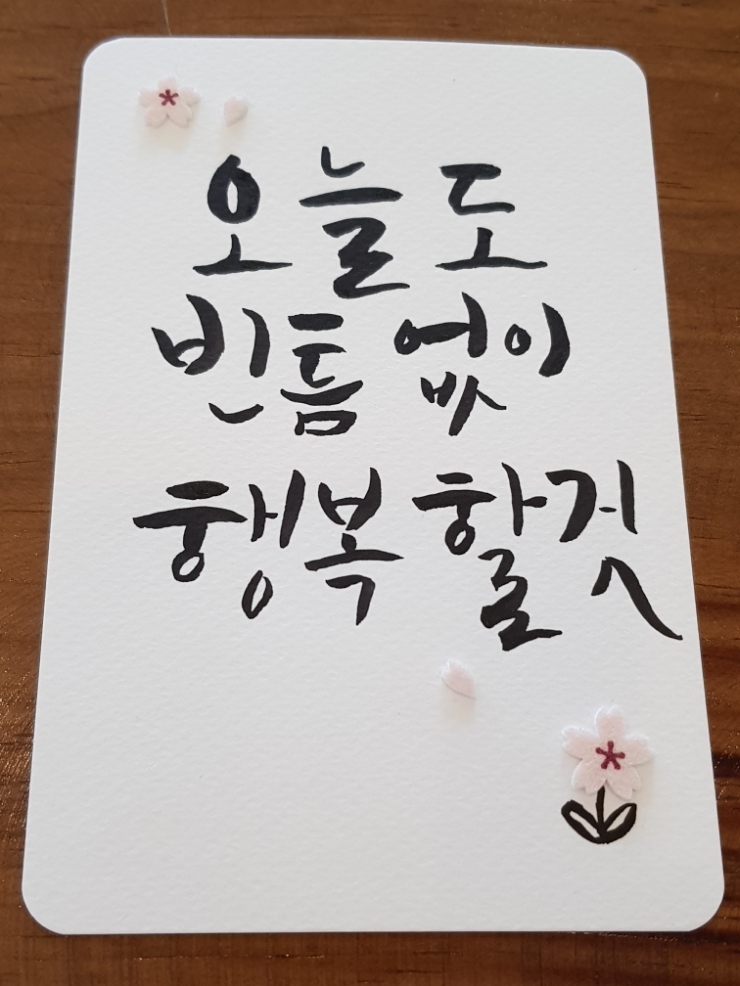 오늘도
빈틈 없이
행복 할 것